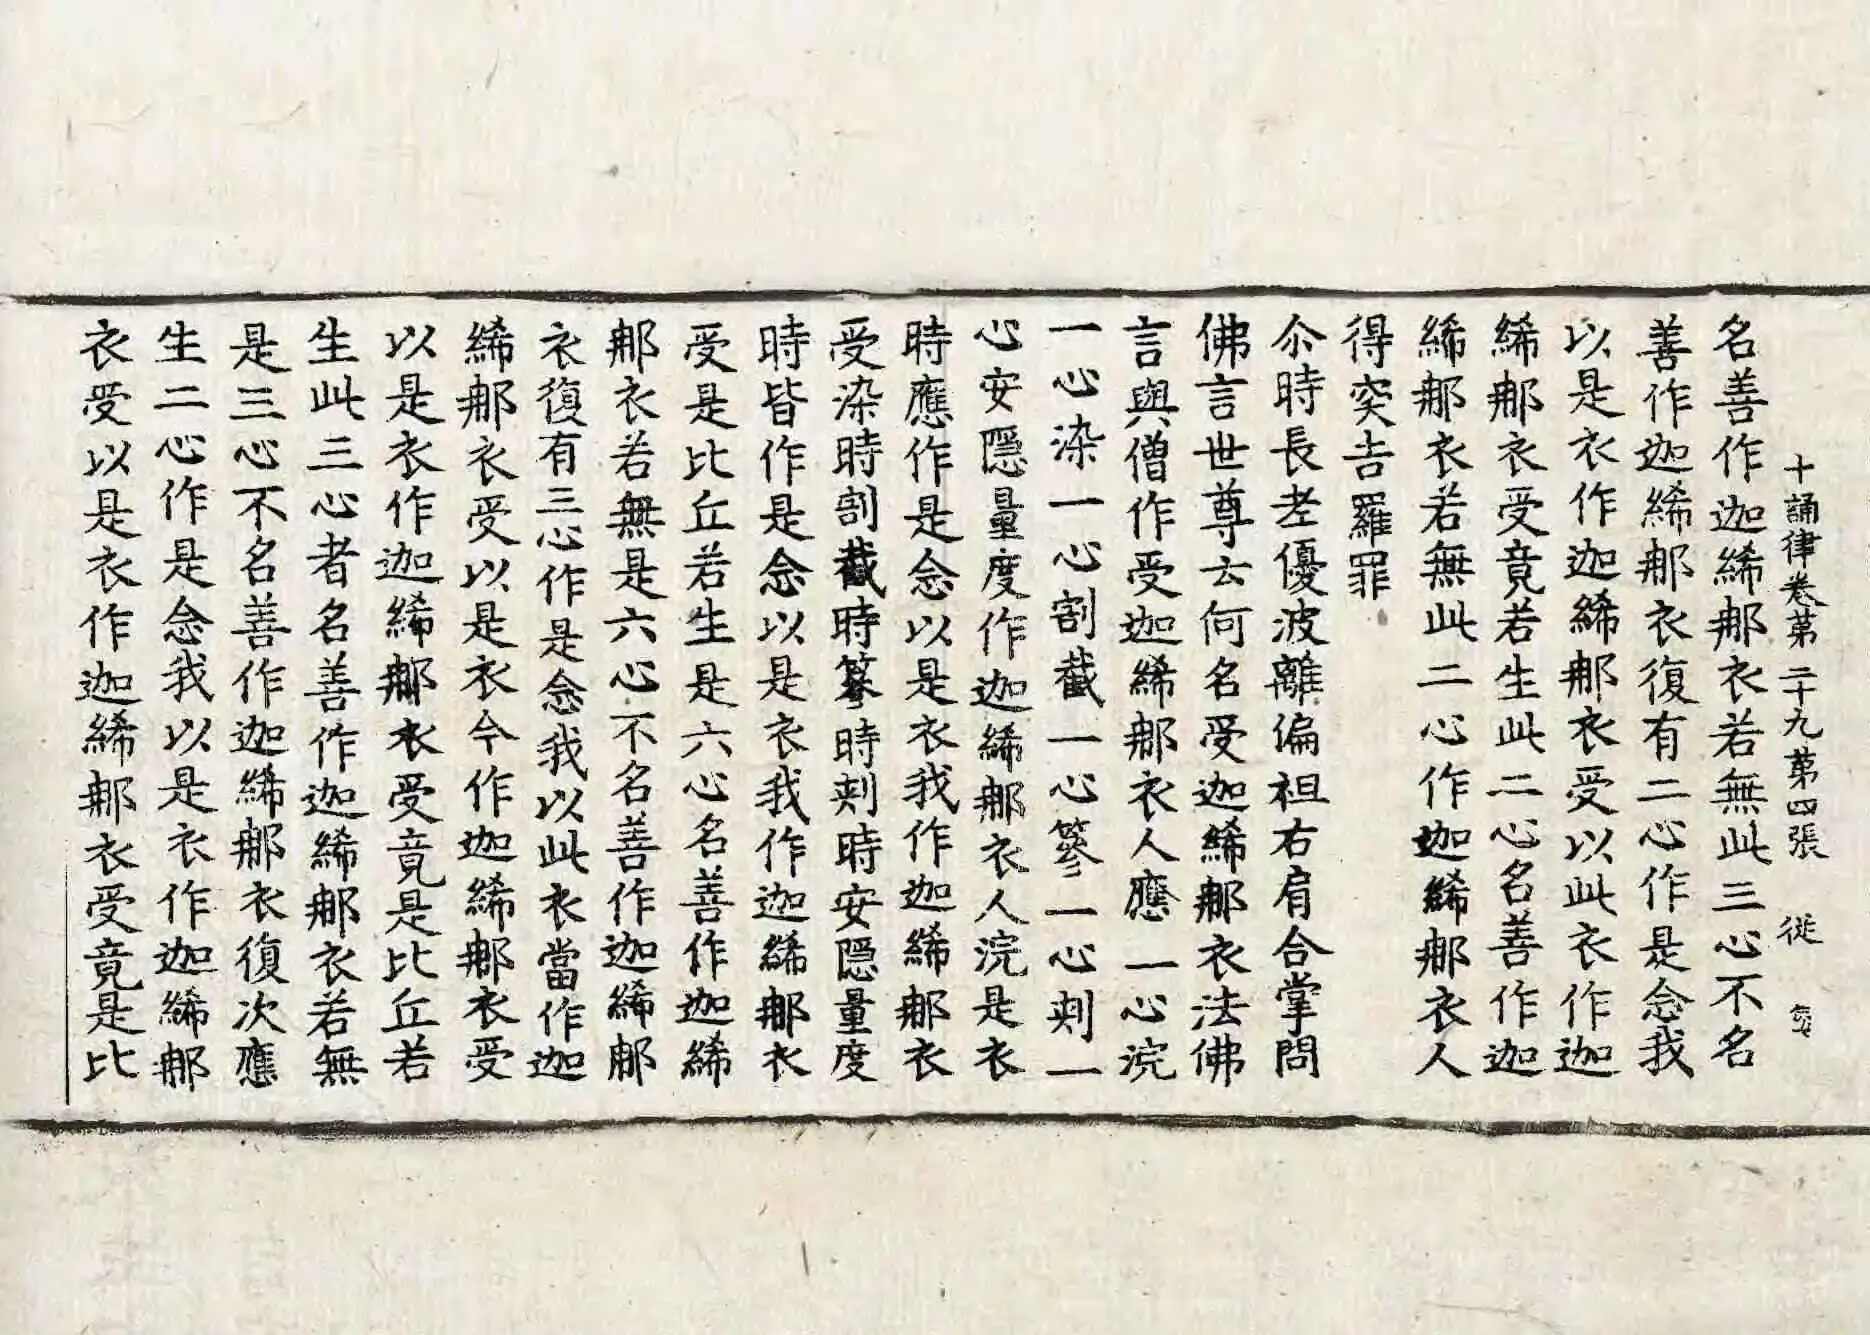 十誦律卷第二十九第四張 從
名善作迦絺那衣若無此三心不名
善作迦絺那衣復有二心作是念我
以是衣作迦絺那衣受以此衣作迦
絺那衣受竟若生此二心名善作迦
絺那衣若無此二心作迦絺那衣人
得突吉羅罪
尒時長老優波離偏袒右肩合掌問
佛言世尊云何名受迦絺那衣法佛
言與僧作受迦絺那衣人應一心浣
一心染一心割截一心篸一心刾一
心安隱量度作迦絺那衣人浣是衣
時應作是念以是衣我作迦絺那衣
受染時割截時篸時刾時安隱量度
時皆作是念以是衣我作迦絺那衣
受是比丘若生是六心名善作迦絺
那衣若無是六心不名善作迦絺那
衣復有三心作是念我以此衣當作迦
絺那衣受以是衣今作迦絺那衣受
以是衣作迦絺那衣受竟是比丘若
生此三心者名善作迦絺那衣若無
是三心不名善作迦絺那衣復次應
生二心作是念我以是衣作迦絺那
衣受以是衣作迦絺那衣受竟是比